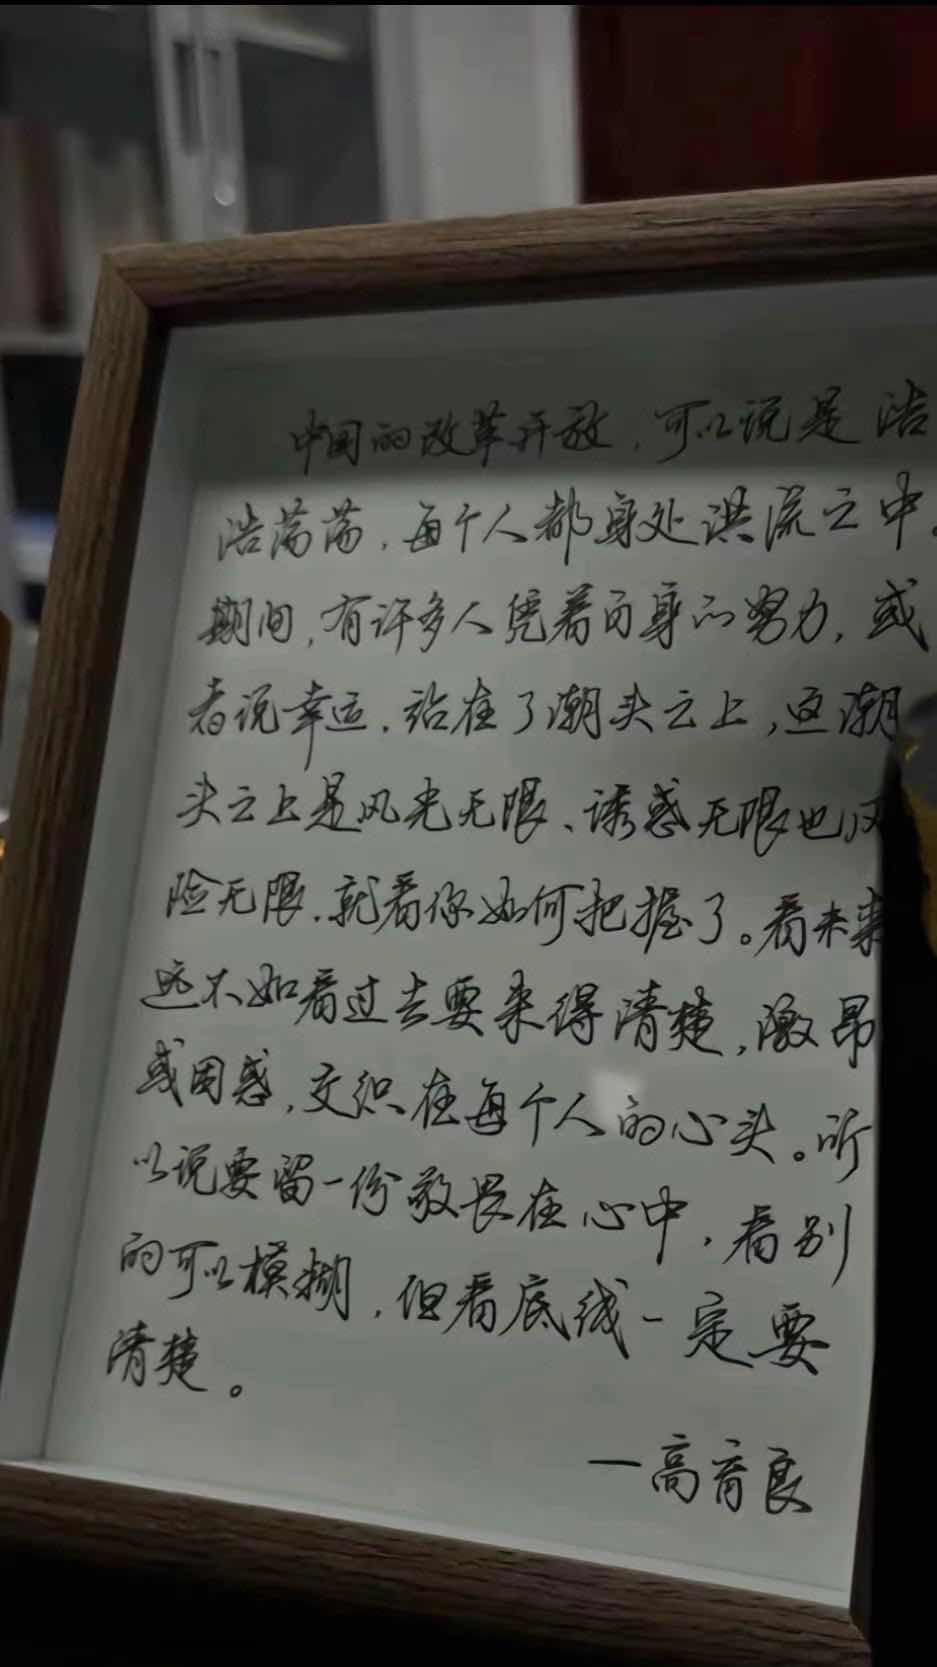 中国的改革开放，可以说是浩
浩荡荡，每个人都身处洪流之中。
期间，有许多人凭着自身的努力，或
者说幸运，站在了潮头之上，这潮
头之上是风光无限、诱惑无限也风
险无限，就看你如何把握了。看未来
远不如看过去要来得清楚，激昂
或困惑，交织在每个人的心头。所
以说要留一份敬畏在心中，看别
的可以模糊，但看底线一定要
清楚。
—高育良